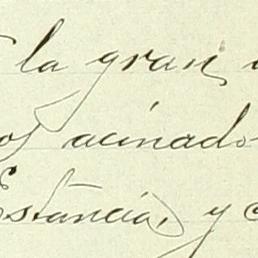 la gran
os acinado
Estancia, y